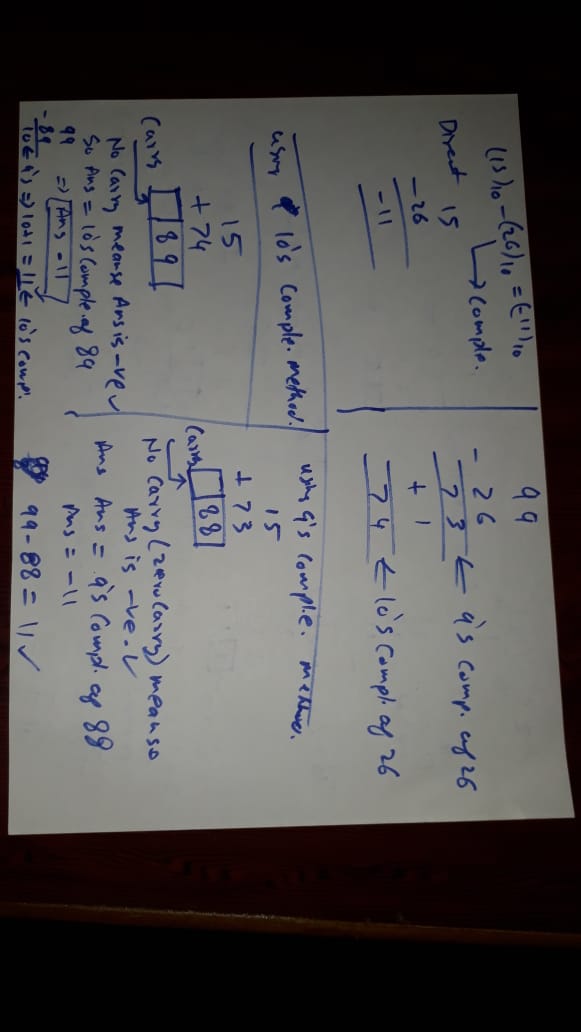 (15)10 - (26)10 = (-11)10
↳ Comple.
Direct 15
-26
-11
99
- 26
73 ← 9's comp. of 26
+ 1
74 ← 10's Compl. of 26
using 10's Comple. method.
15
+ 74
Carry 89
No Carry meanse Ans is -ve ✓
So Ans = 10's Comple. of 89
99 ⇒ Ans -11
- 89
10 ← 9's ⇒ 10+1 = 11 ← 10's Compl.
using 9's Comple. method.
15
+ 73
Carry 88
No Carry (zero Carry) mean so
Ans is -ve. ✓
Ans = 9's Compl. of 88
Ans = -11
99 - 88 = 11 ✓